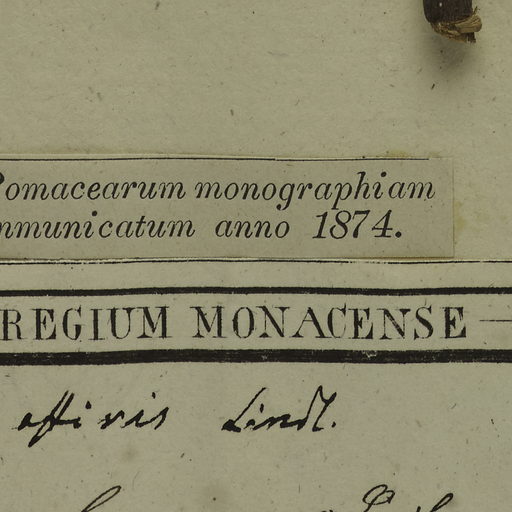 Pomacearum monographiam
mmunicatum anno 1874.
REGIUM MONACENSE
affinis Lindl.